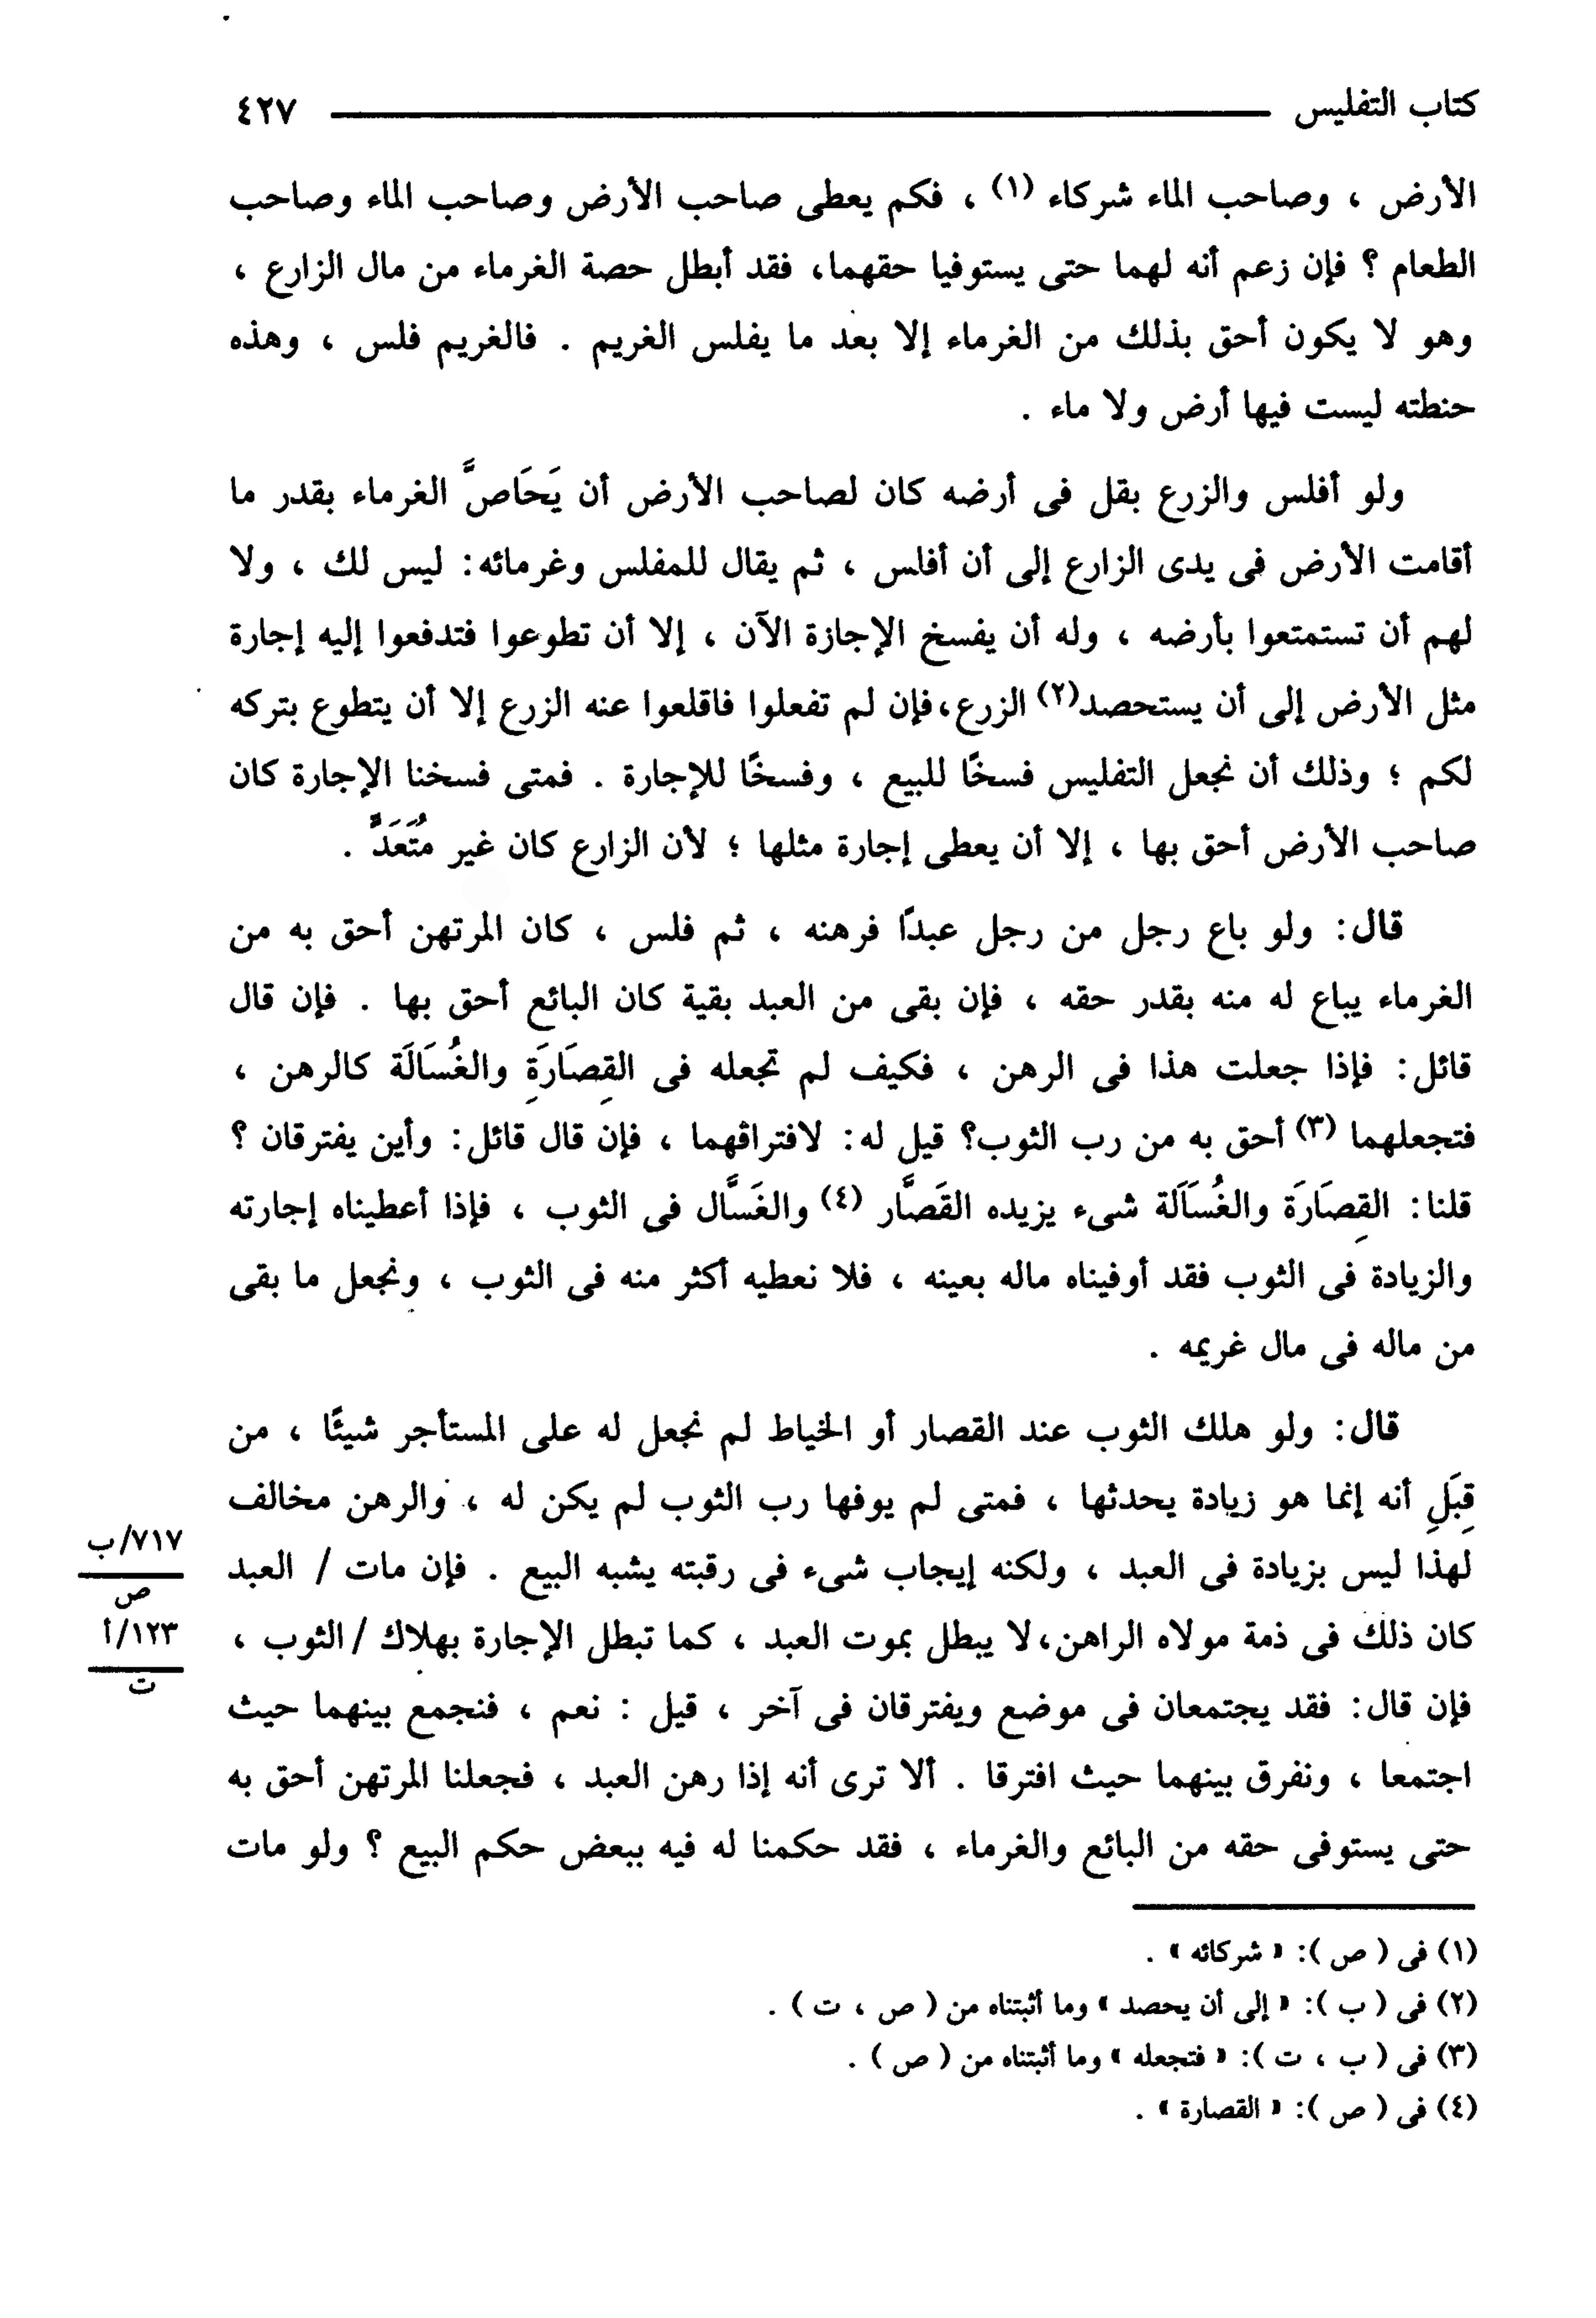 كتاب التفليس ٤٢٧
الأرض ، وصاحب الماء شركاء (١) ، فكم يعطى صاحب الأرض وصاحب الماء وصاحب
الطعام ؟ فإن زعم أنه لهما حتى يستوفيا حقهما، فقد أبطل حصة الغرماء من مال الزارع ،
وهو لا يكون أحق بذلك من الغرماء إلا بعد ما يفلس الغريم . فالغريم فلس ، وهذه
حنطته ليست فيها أرض ولا ماء .
ولو أفلس والزرع بقل فى أرضه كان لصاحب الأرض أن يَحَاصَّ الغرماء بقدر ما
أقامت الأرض فى يدى الزارع إلى أن أفلس ، ثم يقال للمفلس وغرمائه: ليس لك ، ولا
لهم أن تستمتعوا بأرضه ، وله أن يفسخ الإجازة الآن ، إلا أن تطوعوا فتدفعوا إليه إجارة
مثل الأرض إلى أن يستحصد(٢) الزرع،فإن لم تفعلوا فاقلعوا عنه الزرع إلا أن يتطوع بتركه
لكم ؛ وذلك أن نجعل التفليس فسخًا للبيع ، وفسخًا للإجارة . فمتى فسخنا الإجارة كان
صاحب الأرض أحق بها ، إلا أن يعطى إجارة مثلها ؛ لأن الزارع كان غير مُتَعَدٍّ .
قال: ولو باع رجل من رجل عبدًا فرهنه ، ثم فلس ، كان المرتهن أحق به من
الغرماء يباع له منه بقدر حقه ، فإن بقى من العبد بقية كان البائع أحق بها . فإن قال
قائل: فإذا جعلت هذا فى الرهن ، فكيف لم تجعله فى القِصَارَةِ والغُسَالَة كالرهن ،
فتجعلهما (٣) أحق به من رب الثوب؟ قيل له: لافتراقهما ، فإن قال قائل: وأين يفترقان ؟
قلنا: القِصَارَة والغُسَالَة شىء يزيده القَصَّار (٤) والغَسَّال فى الثوب ، فإذا أعطيناه إجارته
والزيادة فى الثوب فقد أوفيناه ماله بعينه ، فلا نعطيه أكثر منه فى الثوب ، ونجعل ما بقى
من ماله فى مال غريمه .
قال: ولو هلك الثوب عند القصار أو الخياط لم نجعل له على المستأجر شيئًا ، من
قِبَلِ أنه إنما هو زيادة يحدثها ، فمتى لم يوفها رب الثوب لم يكن له ، والرهن مخالف
لهذا ليس بزيادة فى العبد ، ولكنه إيجاب شىء فى رقبته يشبه البيع . فإن مات / العبد
٧١٧/ب
ص
كان ذلك فى ذمة مولاه الراهن،لا يبطل بموت العبد ، كما تبطل الإجارة بهلاك / الثوب ،
١٢٣/أ
ت
فإن قال: فقد يجتمعان فى موضع ويفترقان فى آخر ، قيل : نعم ، فنجمع بينهما حيث
اجتمعا ، ونفرق بينهما حيث افترقا . ألا ترى أنه إذا رهن العبد ، فجعلنا المرتهن أحق به
حتى يستوفى حقه من البائع والغرماء ، فقد حكمنا له فيه ببعض حكم البيع ؟ ولو مات
(١) فى ( ص ): « شركائه » .
(٢) فى ( ب ): « إلى أن يحصد » وما أثبتناه من ( ص ، ت ) .
(٣) فى ( ب ، ت ): « فتجعله » وما أثبتناه من ( ص ) .
(٤) فى ( ص ): « القصارة » .